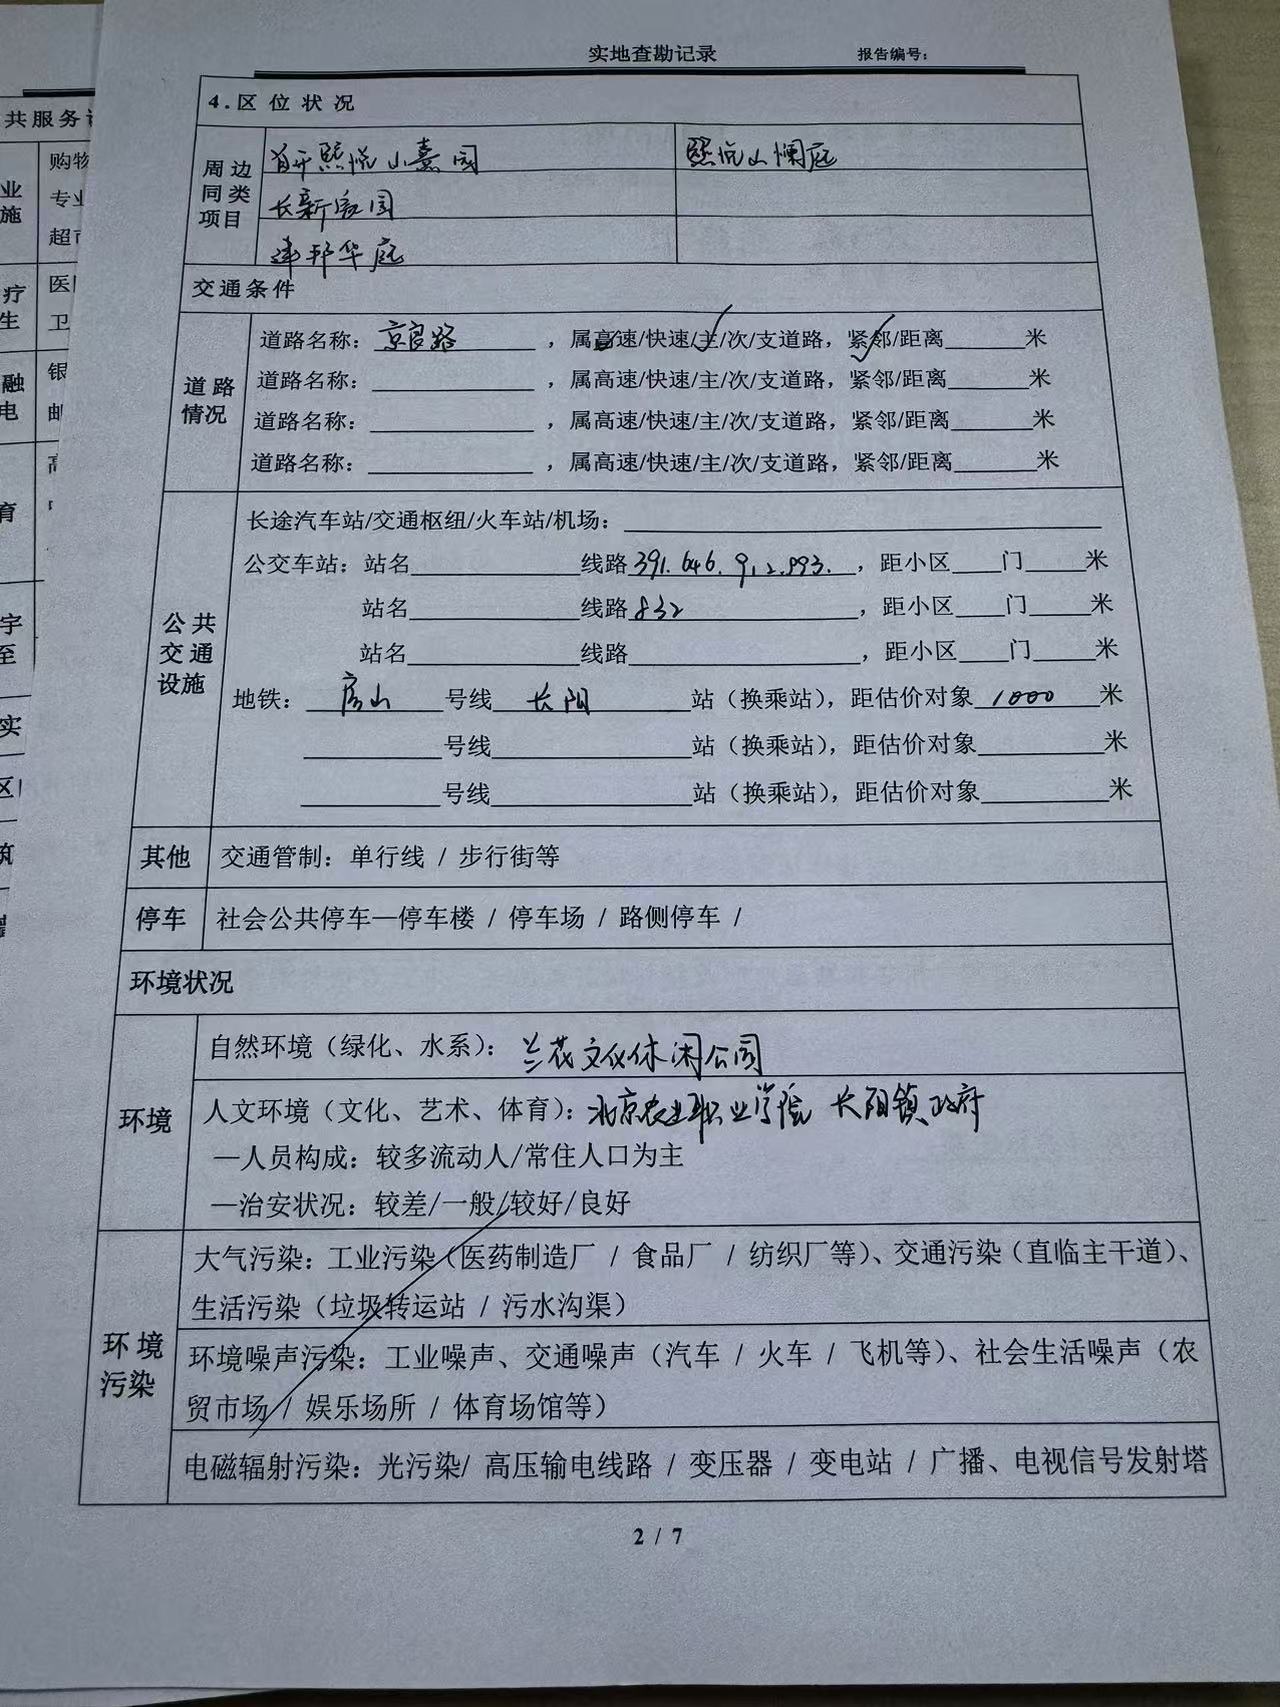 实地查勘记录 报告编号:
4.区位状况
周边同类项目
首开熙悦山熹园 熙悦山澜庭
长新家园
建邦华庭
交通条件
道路情况
道路名称: 京良路 ，属高速/快速/主/次/支道路，紧邻/距离______米
道路名称: ____________ ，属高速/快速/主/次/支道路，紧邻/距离______米
道路名称: ____________ ，属高速/快速/主/次/支道路，紧邻/距离______米
道路名称: ____________ ，属高速/快速/主/次/支道路，紧邻/距离______米
公共交通设施
长途汽车站/交通枢纽/火车站/机场: ____________
公交车站: 站名____________线路391.646.912.993.，距小区____门____米
站名____________线路832，距小区____门____米
站名____________线路____________，距小区____门____米
地铁: 房山 号线 长阳 站（换乘站），距估价对象 1000 米
____________号线____________站（换乘站），距估价对象________米
____________号线____________站（换乘站），距估价对象________米
其他 交通管制: 单行线 / 步行街等
停车 社会公共停车—停车楼 / 停车场 / 路侧停车 /
环境状况
环境
自然环境（绿化、水系）: 兰花文化休闲公园
人文环境（文化、艺术、体育）: 北京农业职业学院 长阳镇政府
—人员构成: 较多流动人/常住人口为主
—治安状况: 较差/一般/较好/良好
环境污染
大气污染: 工业污染（医药制造厂 / 食品厂 / 纺织厂等）、交通污染（直临主干道）、
生活污染（垃圾转运站 / 污水沟渠）
环境噪声污染: 工业噪声、交通噪声（汽车 / 火车 / 飞机等）、社会生活噪声（农
贸市场 / 娱乐场所 / 体育场馆等）
电磁辐射污染: 光污染/ 高压输电线路 / 变压器 / 变电站 / 广播、电视信号发射塔
2 / 7